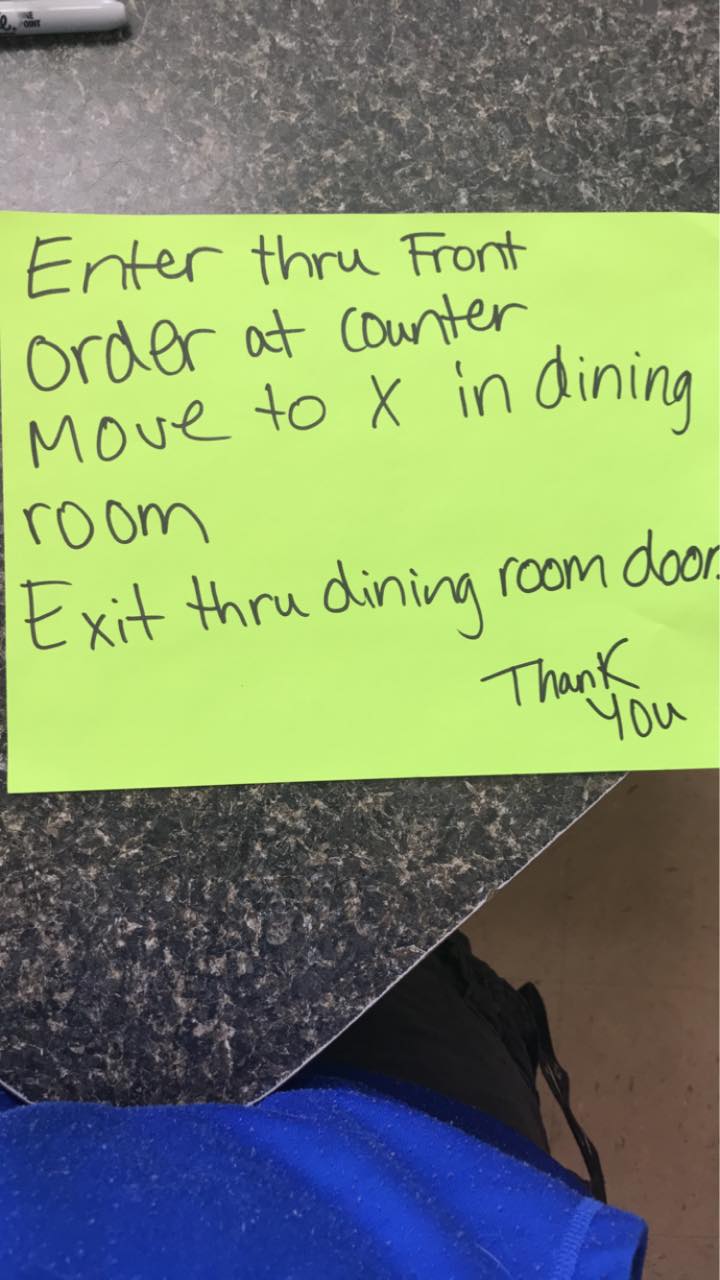 INE
POINT
Enter thru Front
order at counter
Move to X in dining
room
Exit thru dining room door.
Thank
You